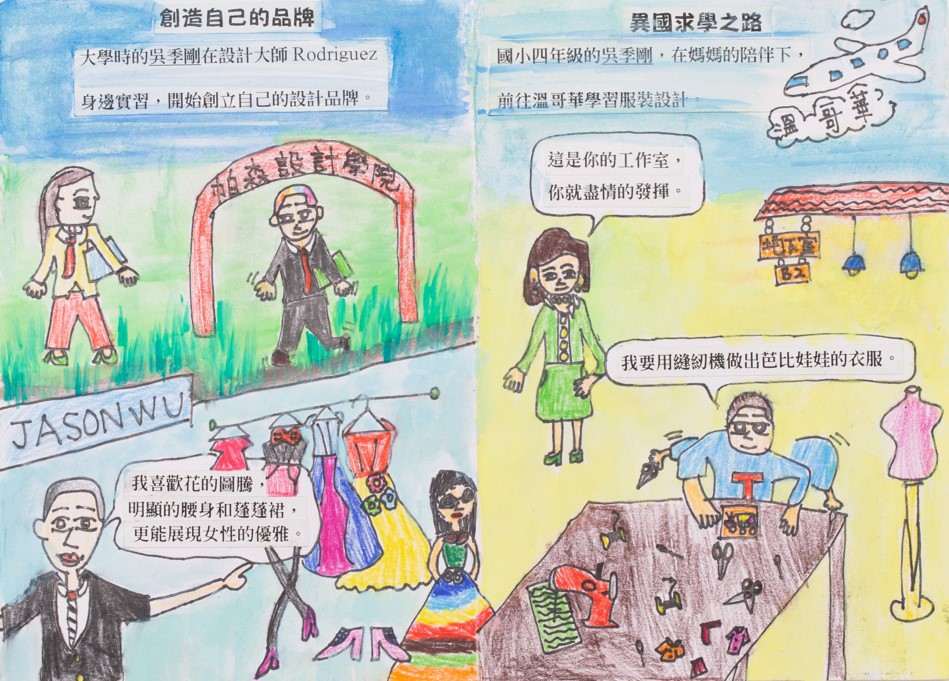 異國求學之路
國小四年級的吳季剛，在媽媽的陪伴下，
前往溫哥華學習服裝設計。
溫哥華
這是你的工作室，
你就盡情的發揮。
B2
我要用縫紉機做出芭比娃娃的衣服。
創造自己的品牌
大學時的吳季剛在設計大師 Rodriguez
身邊實習，開始創立自己的設計品牌。
帕森設計學院
JASON WU
我喜歡花的圖騰，
明顯的腰身和蓬蓬裙，
更能展現女性的優雅。